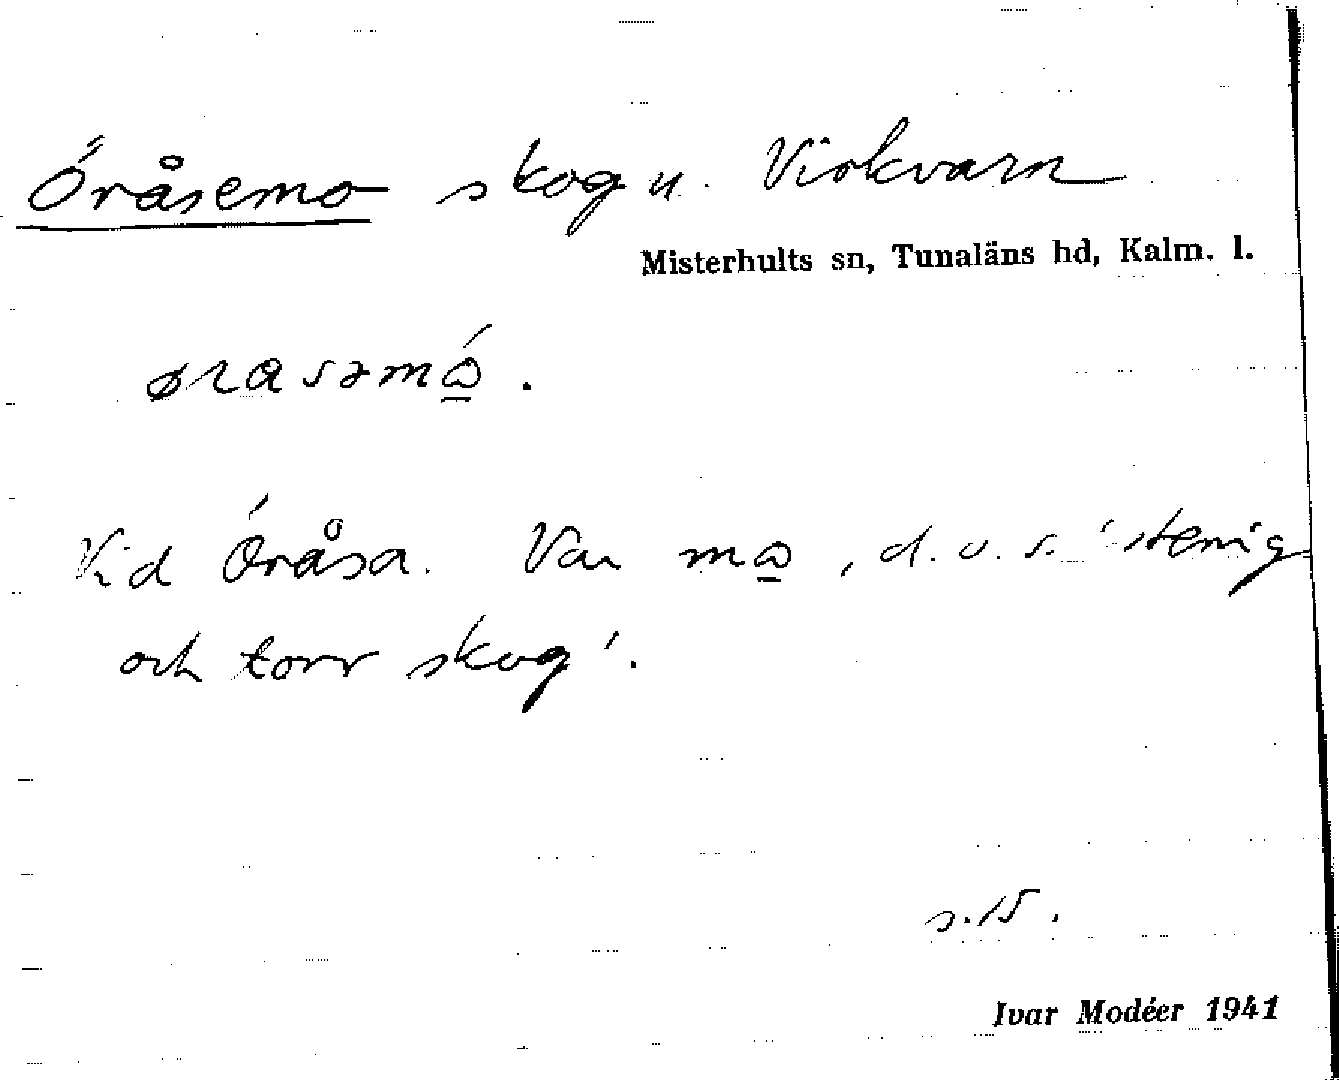 Öråsemo skog u. Virkvarn
Misterhults sn, Tunaläns hd, Kalm. l.
Vid Öråsa. Var mω, d.v.s. 'stenig
och torr skog'.
s. 15.
Ivar Modéer 1941